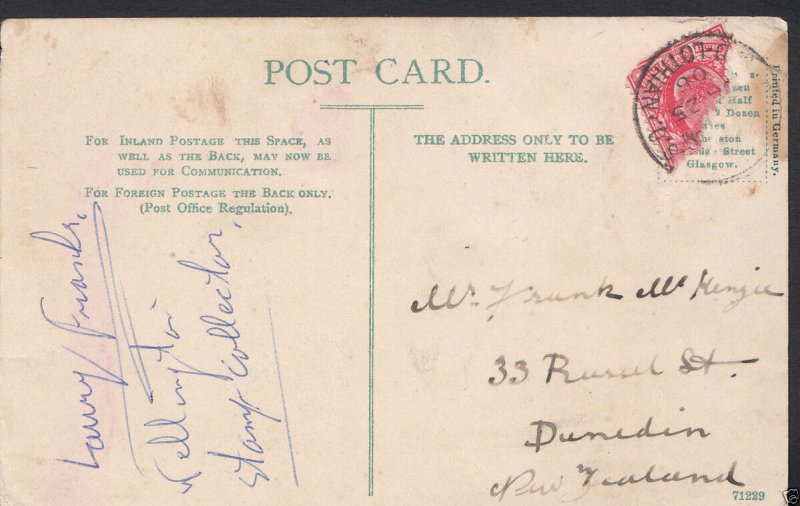 POST CARD.
FOR INLAND POSTAGE THIS SPACE, AS
WELL AS THE BACK, MAY NOW BE
USED FOR COMMUNICATION.
FOR FOREIGN POSTAGE THE BACK ONLY.
(Post Office Regulation).
THE ADDRESS ONLY TO BE
WRITTEN HERE.
Half
Dozen
Street
Glasgow.
Printed in Germany.
LOTHIAN
25
06
Larry Franks,
Stamp Collector,
Mr. Frank McKenzie
33 Russel St.
Dunedin
New Zealand
71229